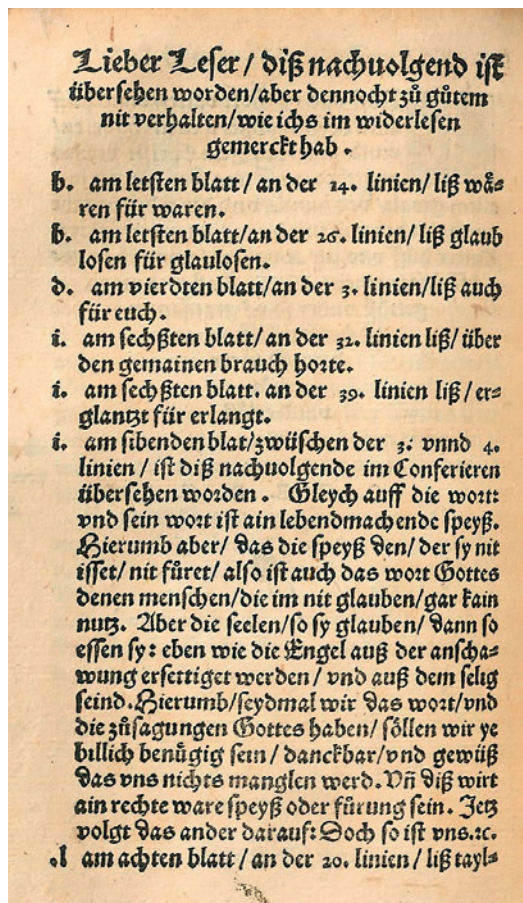 Lieber Leser / diß nachuolgend ist
übersehen worden/aber dennocht zů gůtem
nit verhalten/wie ichs im widerlesen
gemerckt hab.
b. am letsten blatt / an der 14. linien/ liß wå⸗
ren für waren.
b. am letsten blatt/an der 26. linien/ liß glaub
losen für glaulosen.
d. am vierdten blatt/an der 3. linien/liß auch
für euch.
i. am sechßten blatt/ an der 32. linien liß/ über
den gemainen brauch horte.
i. am sechßten blatt. an der 39. linien liß / er⸗
glantzt für erlangt.
i. am sibenden blat/zwüschen der 3. vnnd 4.
linien / ist diß nachuolgende im Conferieren
übersehen worden. Gleych auff die wort:
vnd sein wort ist ain lebendmachende speyß.
Hierumb aber/ das die speyß den/ der sy nit
isset/ nit füret/ also ist auch das wort Gottes
denen menschen/die im nit glauben/gar kain
nutz. Aber die seelen/so sy glauben/ dann so
essen sy: eben wie die Engel auß der anscha⸗
wung ersettiget werden / vnd auß dem selig
seind. Hierumb/seydmal wir das wort/vnd
die zůsagungen Gottes haben/ söllen wir ye
billich benůgig sein / danckbar/vnd gewüß
das vns nichts manglen werd. Vñ diß wirt
ain rechte ware speyß oder fürung sein. Jetz
volgt das ander darauf: Doch so ist vns.ꝛc.
.l am achten blatt / an der 20. linien / liß tayl⸗